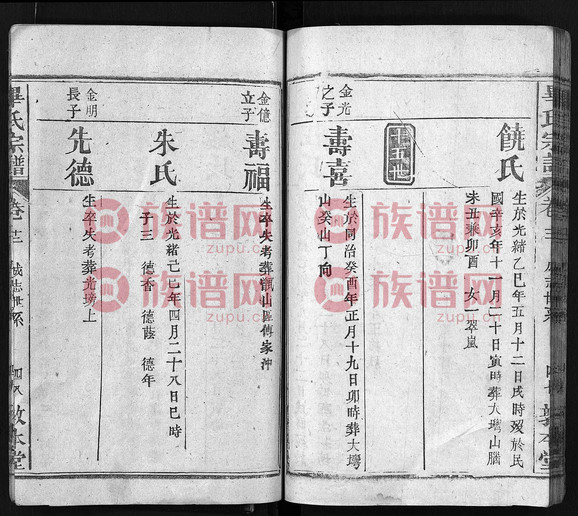 饒氏
生於光緒乙巳年五月十二日戌時歿於民
國辛亥年十一月二十日寅時葬大灣山腦
未丑兼卯酉 女一翠嵐
十五世
金光
之子
壽喜
生於同治癸酉年正月十九日卯時葬大灣
山癸山丁向
金億
立子
壽福
生卒失考葬
山區傳家冲
朱氏
生於光緒己巳年四月二十八日巳時
子三 德杏 德蔭 德年
金朋
長子
先德
生卒失考葬光境上
畢氏宗譜
卷
誠志世系
四八
敦本堂
族谱网
zupu.cn
族谱网
zupu.cn
族谱网
zupu.cn
族谱网
zupu.cn